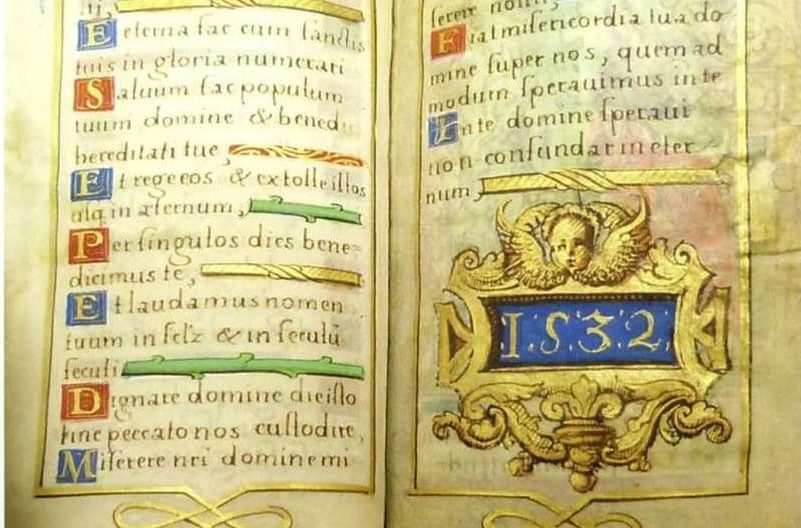 ij,
Eeterna fac cum sanctis
tuis in gloria numerari
Saluum fac populum
tuum domine & benedic
hereditati tue,
Et rege eos & extolle illos
usq in æternum,
Per singulos dies bene=
dicimus te,
Et laudamus nomen
tuum in sclz & in seculū
seculi
Dignare domine die isto
sine peccato nos custodire,
Miserere nri domine mi
serere nostri,
Fiat misericordia tua do
mine super nos, quem ad
modum sperauimus in te
In te domine speraui
non confundar in eter
num,
1.5.3.2.